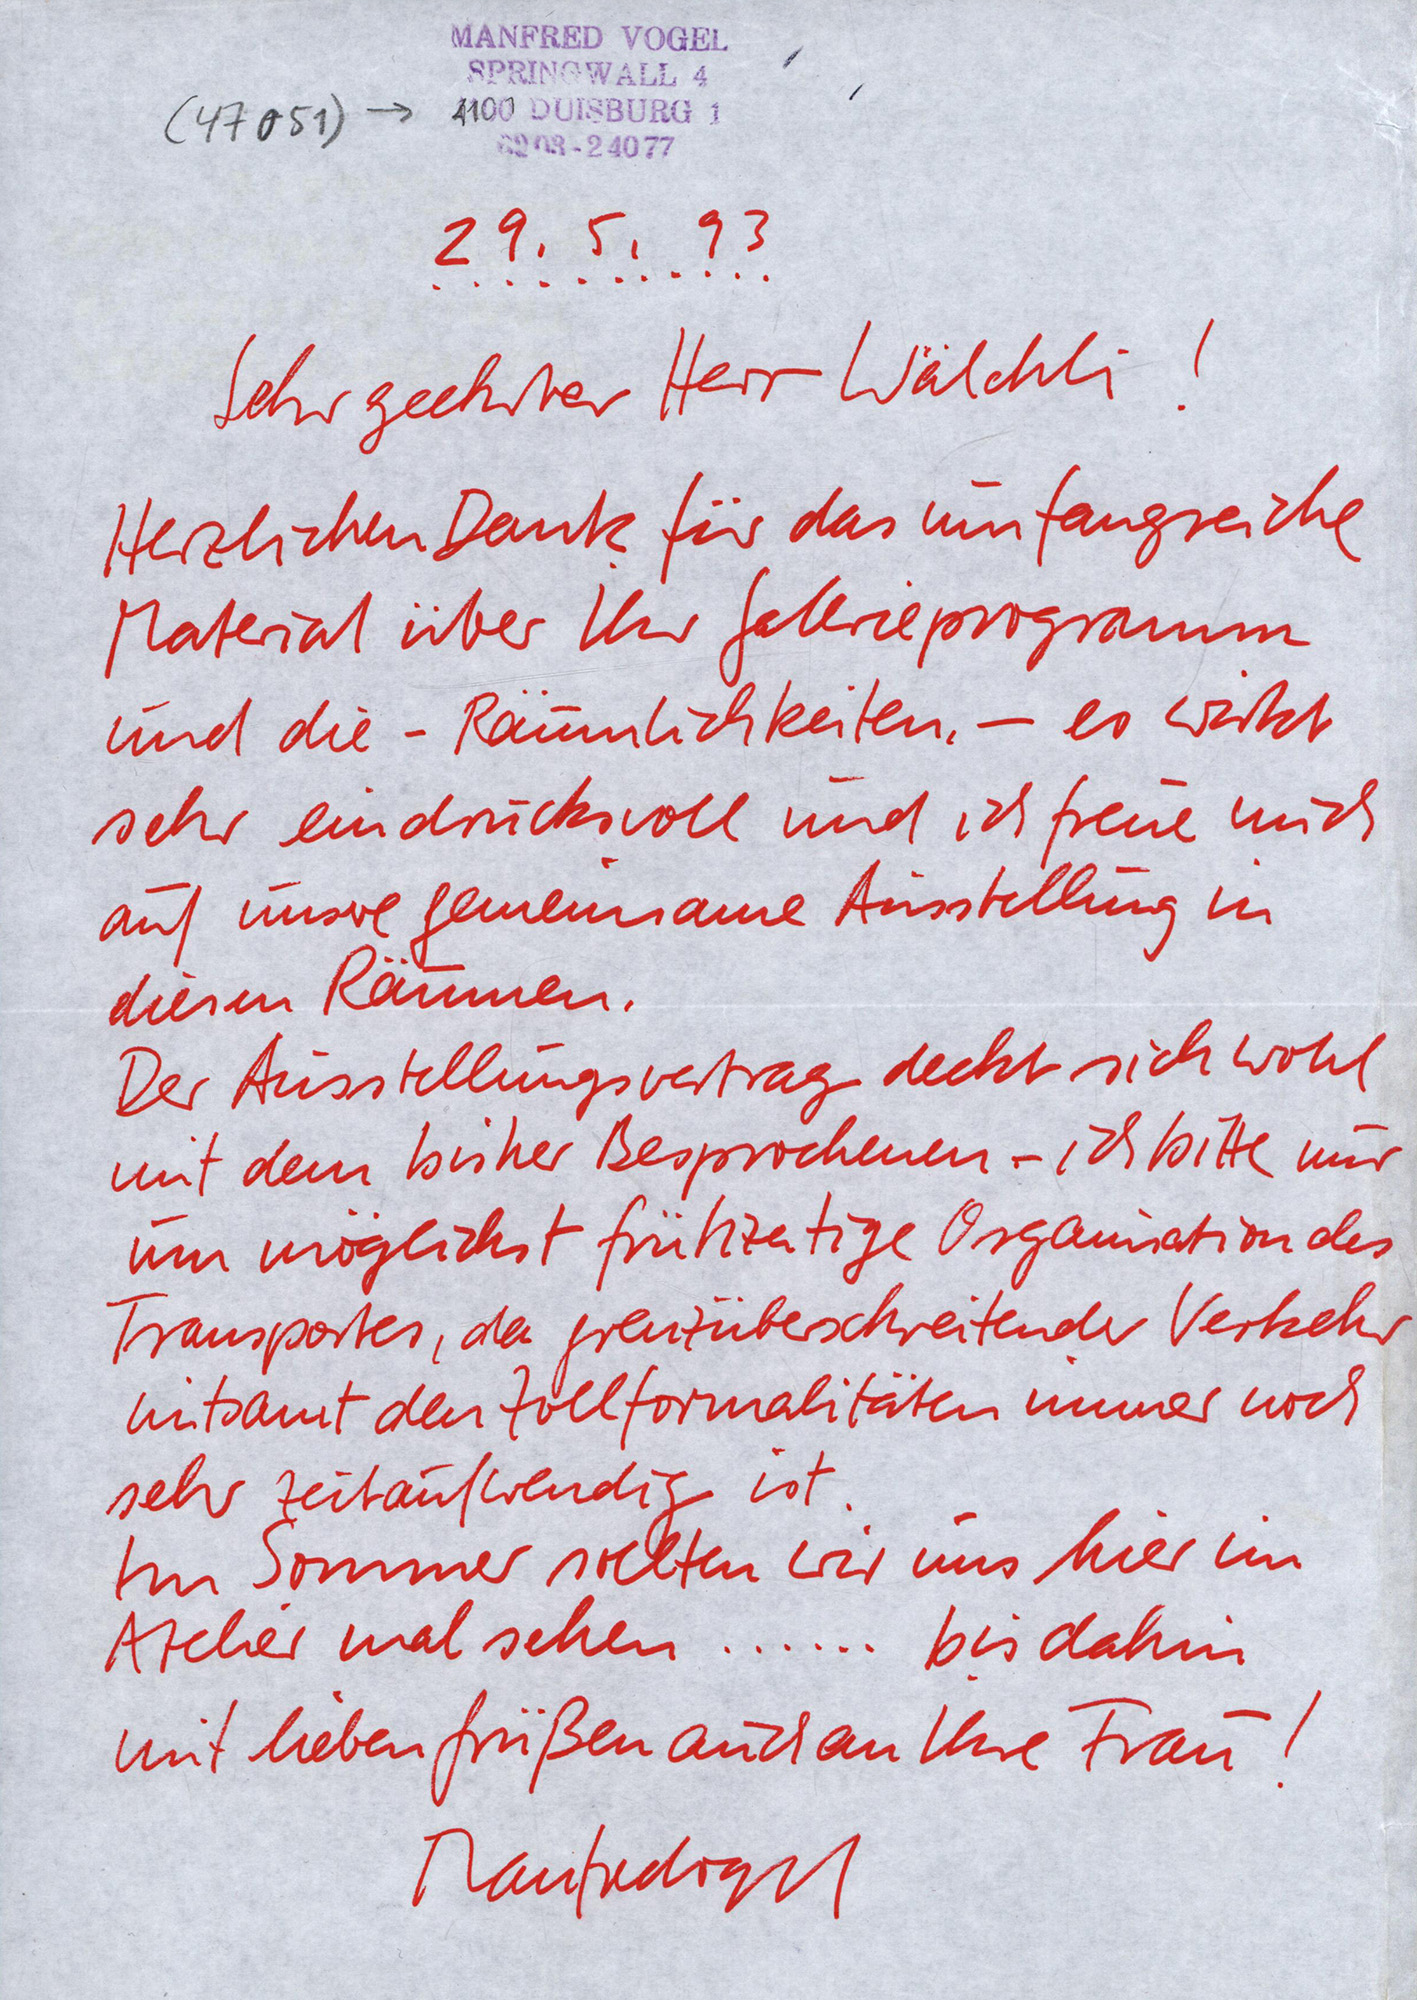 MANFRED VOGEL
SPRINGWALL 4
(47051) → 4100 DUISBURG 1
0203-24077
29.5.93
Sehr geehrter Herr Wälchli!
Herzlichen Dank für das umfangreiche
Material über Ihr Gallerieprogramm
und die - Räumlichkeiten. — es wirkt
sehr eindrucksvoll und ich freue mich
auf unsre gemeinsame Ausstellung in
diesen Räumen.
Der Ausstellungsvertrag deckt sich wohl
mit dem bisher Besprochenen - ich bitte nur
um möglichst frühzeitige Organisation des
Transportes, da grenzüberschreitender Verkehr
mitsamt den Zollformalitäten immer noch
sehr zeitaufwendig ist.
Im Sommer sollten wir uns hier im
Atelier mal sehen ...... bis dahin
mit lieben Grüßen auch an Ihre Frau!
Manfredvogel